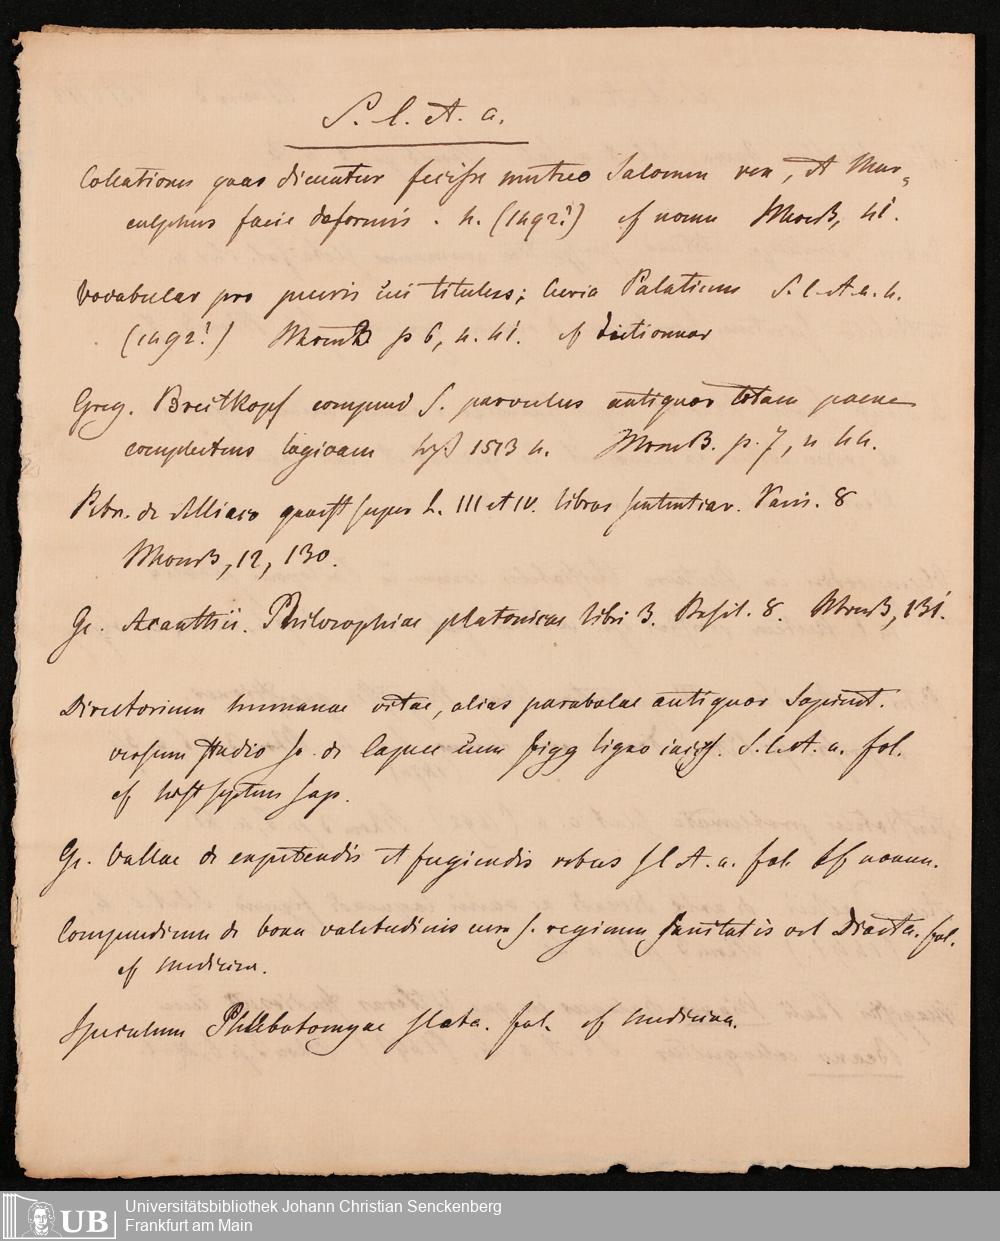 S. l. et. a.
Collationes quas dicuntur fecisse mutuo Salomon rex, et Mar-
culphus facie deformis. 4. (1492?) cf 41.
Vocabular pro pueris cui titulus; Curia Palatium S. l. et a. 4.
(1492?) p 6, n. 41. cf Dictionnar
Greg. Breitkopf compend S. parvulus antiquor totam paene
complectens logicam 1513 4. p. 7, n 44.
Petr. de Alliaco quaest super L. III et IV. libros sententiar. Paris. 8
12, 130.
Ge. Acanthii. Philosophiae platonicae libri 3. Basil. 8. 131.
Directorium humanae vitae, alias parabolae antiquor Sapient.
versum studio Jo. de Capua cum figg ligno incis. S. l. et. a. fol.
cf hist septem sap.
Ge. Vallae de expetendis et fugiendis rebus s l et. a. fol. cf
Compendium de bona valetudinis cura s. regimen sanitatis vel Diaeta. fol.
cf medicina.
Speculum Phlebotomyae s l et a. fol. cf medicina.
UB
Universitätsbibliothek Johann Christian Senckenberg
Frankfurt am Main